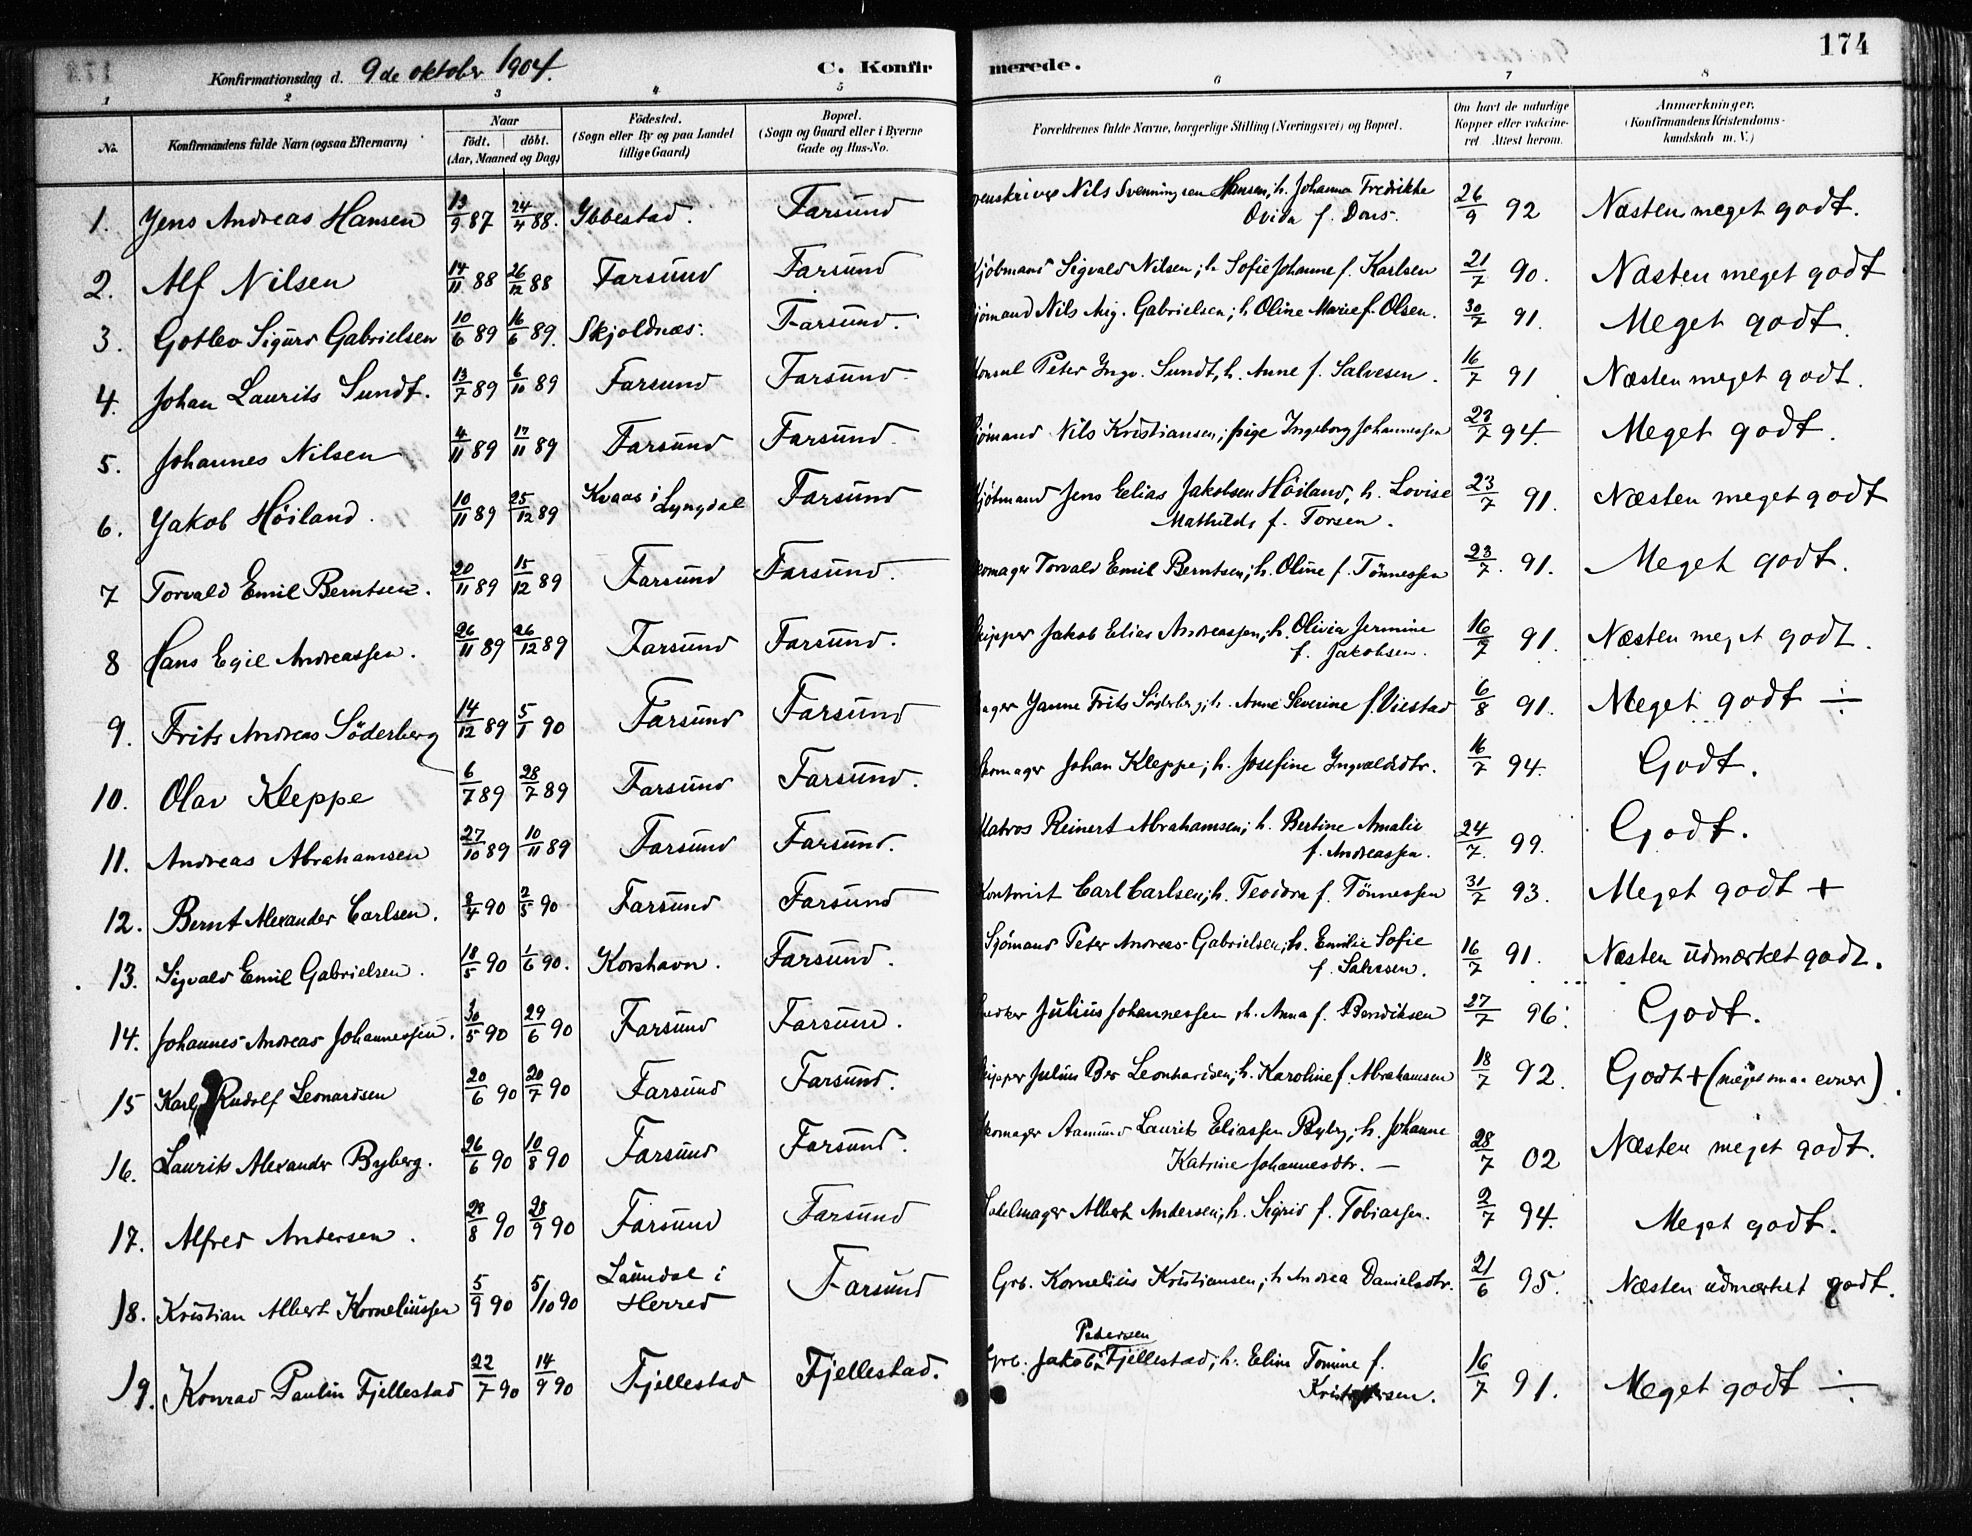 174
Konfirmationsdag d. 9de oktober 1904. C. Konfirmerede.
1 2 3 4 5 6 7 8
No. Konfirmandens fulde Navn (ogsaa Efternavn) Naar født. døbt. (Aar, Maaned og Dag) Fødested. (Sogn eller By og paa Landet tillige Gaard) Bopæl. (Sogn og Gaard eller i Byerne Gade og Hus-No. Forældrenes fulde Navne, borgerlige Stilling (Næringsvei) og Bopæl. Om havt de naturlige Kopper eller vaccineret. Attest herom. Anmærkninger. (Konfirmandens Kristendomskundskab m. V.)
1. Jens Andreas Hansen 13/9 87 24/4 88. Ibbestad. Farsund Nils Svenningsen Hansen, h. Johanna Fredrikke Ovida f. Dons. 26/9 92 Næsten meget godt.
2. Alf Nilsen 14/11 88 26/12 88 Farsund Farsund Kjøbmand Sigvald Nilsen; h. Sofie Johanne f. Karlsen 21/7 90. Næsten meget godt
3. Gotlev Sigurd Gabrielsen 10/6 89 16/6 89. Skjoldnæs. Farsund. Sjømand Nils Aug. Gabrielsen; h. Oline Marie f. Olsen. 30/7 91. Meget godt.
4. Johan Laurits Sundt. 13/7 89 6/10 89 Farsund Farsund. Konsul Peter Ingv. Sundt, h. Anne f. Salvesen. 16/7 91 Næsten meget godt.
5. Johannes Nilsen 4/11 89 17/11 89 Farsund Farsund. Sjømand Nils Kristiansen; pige Ingeborg Johannessen 22/7 94. Meget godt.
6. Jakob Höiland. 10/11 89 25/12 89 Kvaas i Lyngdal Farsund Kjøbmand Jens Elias Jakobsen Höiland, h. Lovise Mathilde f. Torsen. 23/7 91. Næsten meget godt
7 Torvald Emil Berntsen. 20/11 89 15/12 89 Farsund Farsund. Skomager Torvald Emil Berntsen; h. Oline f. Tönnessen 23/7. 91. Meget godt.
8 Hans Egil Andreassen. 26/11 89 26/12 89 Farsund Farsund. Skipper Jakob Elias Andreassen, h. Olivia Jermine f. Jakobsen. 16/7 91. Næsten meget godt.
9. Frits Andreas Söderberg 14/12 89 5/1 90 Farsund Farsund Janne Frits Söderberg; h. Anne Severine f. Viestad 6/8 91. Meget godt ÷
10. Olav Kleppe 6/7 89 28/7 89 Farsund Farsund. Skomager Johan Kleppe; h. Josefine Ingvaldsdtr. 16/7 94. Godt.
11. Andreas Abrahamsen 27/10 89 10/11 89 Farsund Farsund. Matros Reinert Abrahamsen; h. Bertine Amalie f. Andreassen. 24/7. 99. Godt.
12. Bernt Alexander Carlsen. 8/4 90 2/5 90 Farsund Farsund Kontorist Carl Carlsen; h. Teodora f. Tönnessen 31/7 93. Meget godt +
13. Sigvald Emil Gabrielsen. 18/5 90 1/6 90. Korshavn. Farsund. Sjömand Peter Andreas Gabrielsen; h. Emilie Sofie f. Salvesen. 16/7 91. Næsten udmærket godt.
14. Johannes Andreas Johannessen. 30/5 90 29/6 90 Farsund Farsund. Snedker Julius Johannessen, h. Anna f. Bendiksen 27/7 96. Godt.
15 Karl Rudolf Leonardsen 20/6 90 20/7 90 Farsund Farsund. Skipper Julius Ber Leonhardsen; h. Karoline f. Abrahamsen 18/7 92. Godt + (meget smaa evner).
16. Laurits Alexander Byberg. 26/6 90 10/8 90 Farsund Farsund. Skomager Aamund Laurits Eliassen Byberg; h. Johanne Katrine Johannesdtr. 28/7 02 Næsten meget godt.
17. Alfred Andersen. 28/8 90 28/9 90 Farsund Farsund Sadelmager Albert Andersen; h. Sigrid f. Tobiassen. 2/7 94. Meget godt.
18. Kristian Albert Korneliussen 5/9 90 5/10 90 Laundal i Herred Farsund Grb. Kornelius Kristiansen; h. Andrea Danielsdtr. 21/6 95. Næsten udmærket godt.
19. Konrad Paulin Fjellestad 22/7 90 14/9 90 Fjellestad Fjellestad. Grb. Jakob Pedersen Fjellestad; h. Eline Tomine f. Kristoffersen. 16/7 91. Meget godt ÷